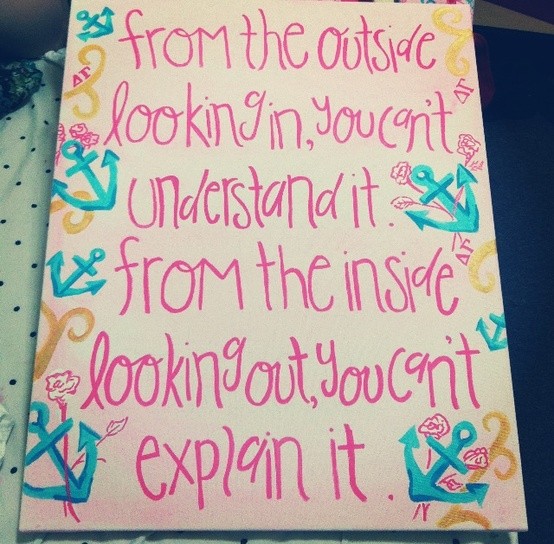 from the outside
ΔΓ
looking in, you can't
ΔΓ
understand it.
from the inside
ΔΓ
looking out, you can't
explain it.